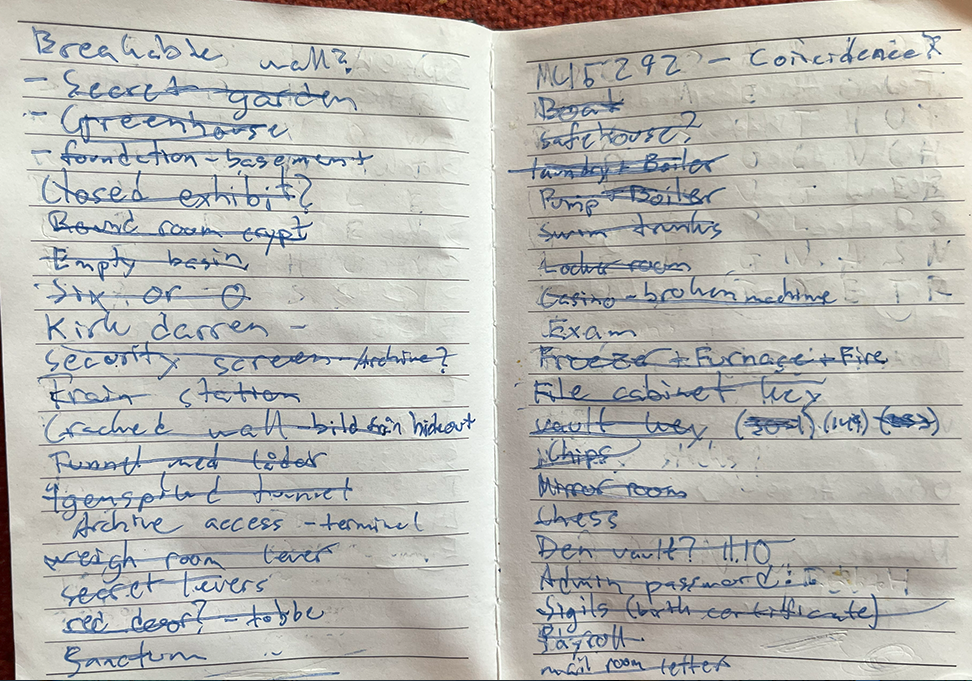 Breakable wall?
- Secret garden
- Greenhouse
- foundation - basement
Closed exhibit?
Round room crypt
Empty basin
Six or 0
Kirk darren -
Security screen Archive?
train station
Cracked wall - bild från hideout
Tunnel med lådor
Igenspikad tunnel
Archive access - terminal
weigh room lever
secret levers
red door? - tobbe
Sanctum
MC15 292 - Coincidence?
Boat
safehouse?
Laundry + Boiler
Pump + Boiler
Swim trunks
Locker room
Casino - broken machine
Exam
Freezer + Furnace + Fire
File cabinet key
vault key (149)
Chips
Mirror room
Chess
Den vault? 11.10
Admin password:
Sigils (birth certificate)
Payroll
mail room letter